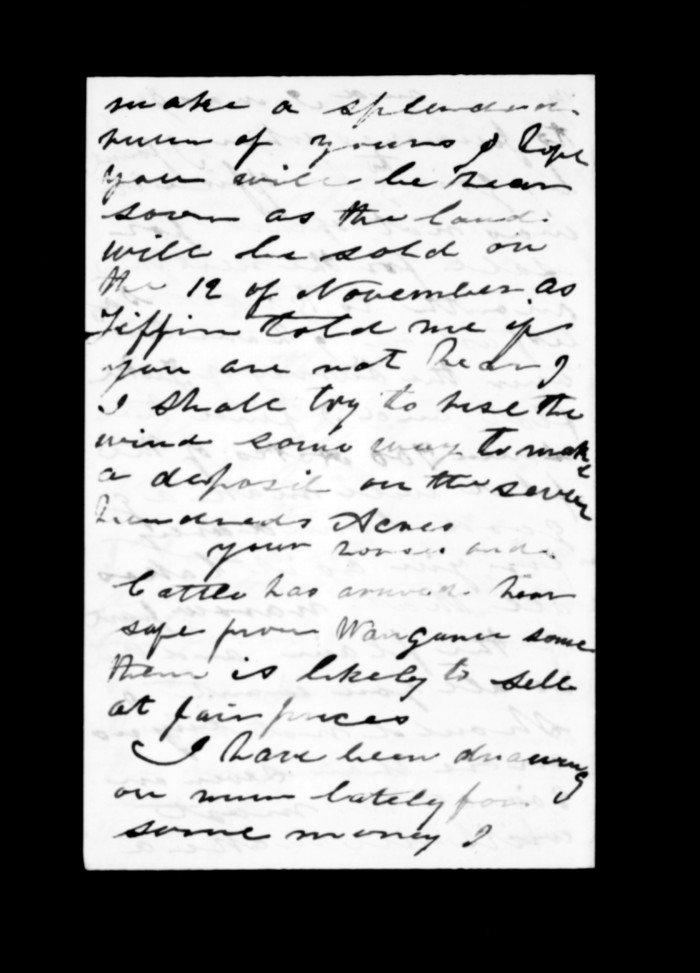 make a splendid
runn of yours I hope
you will be hear
soon as the land
will be sold on
the 12 of November as
Tiffin told me if
you are not hear I
I shall try to rise the
wind some way to make
a deposit on the seven
hundreds Acres
your horses and
Cattle has arrived hear
safe from Wanganui some
them is likely to sell
at fair prices
I have been drawing
on mum lately for
some money I